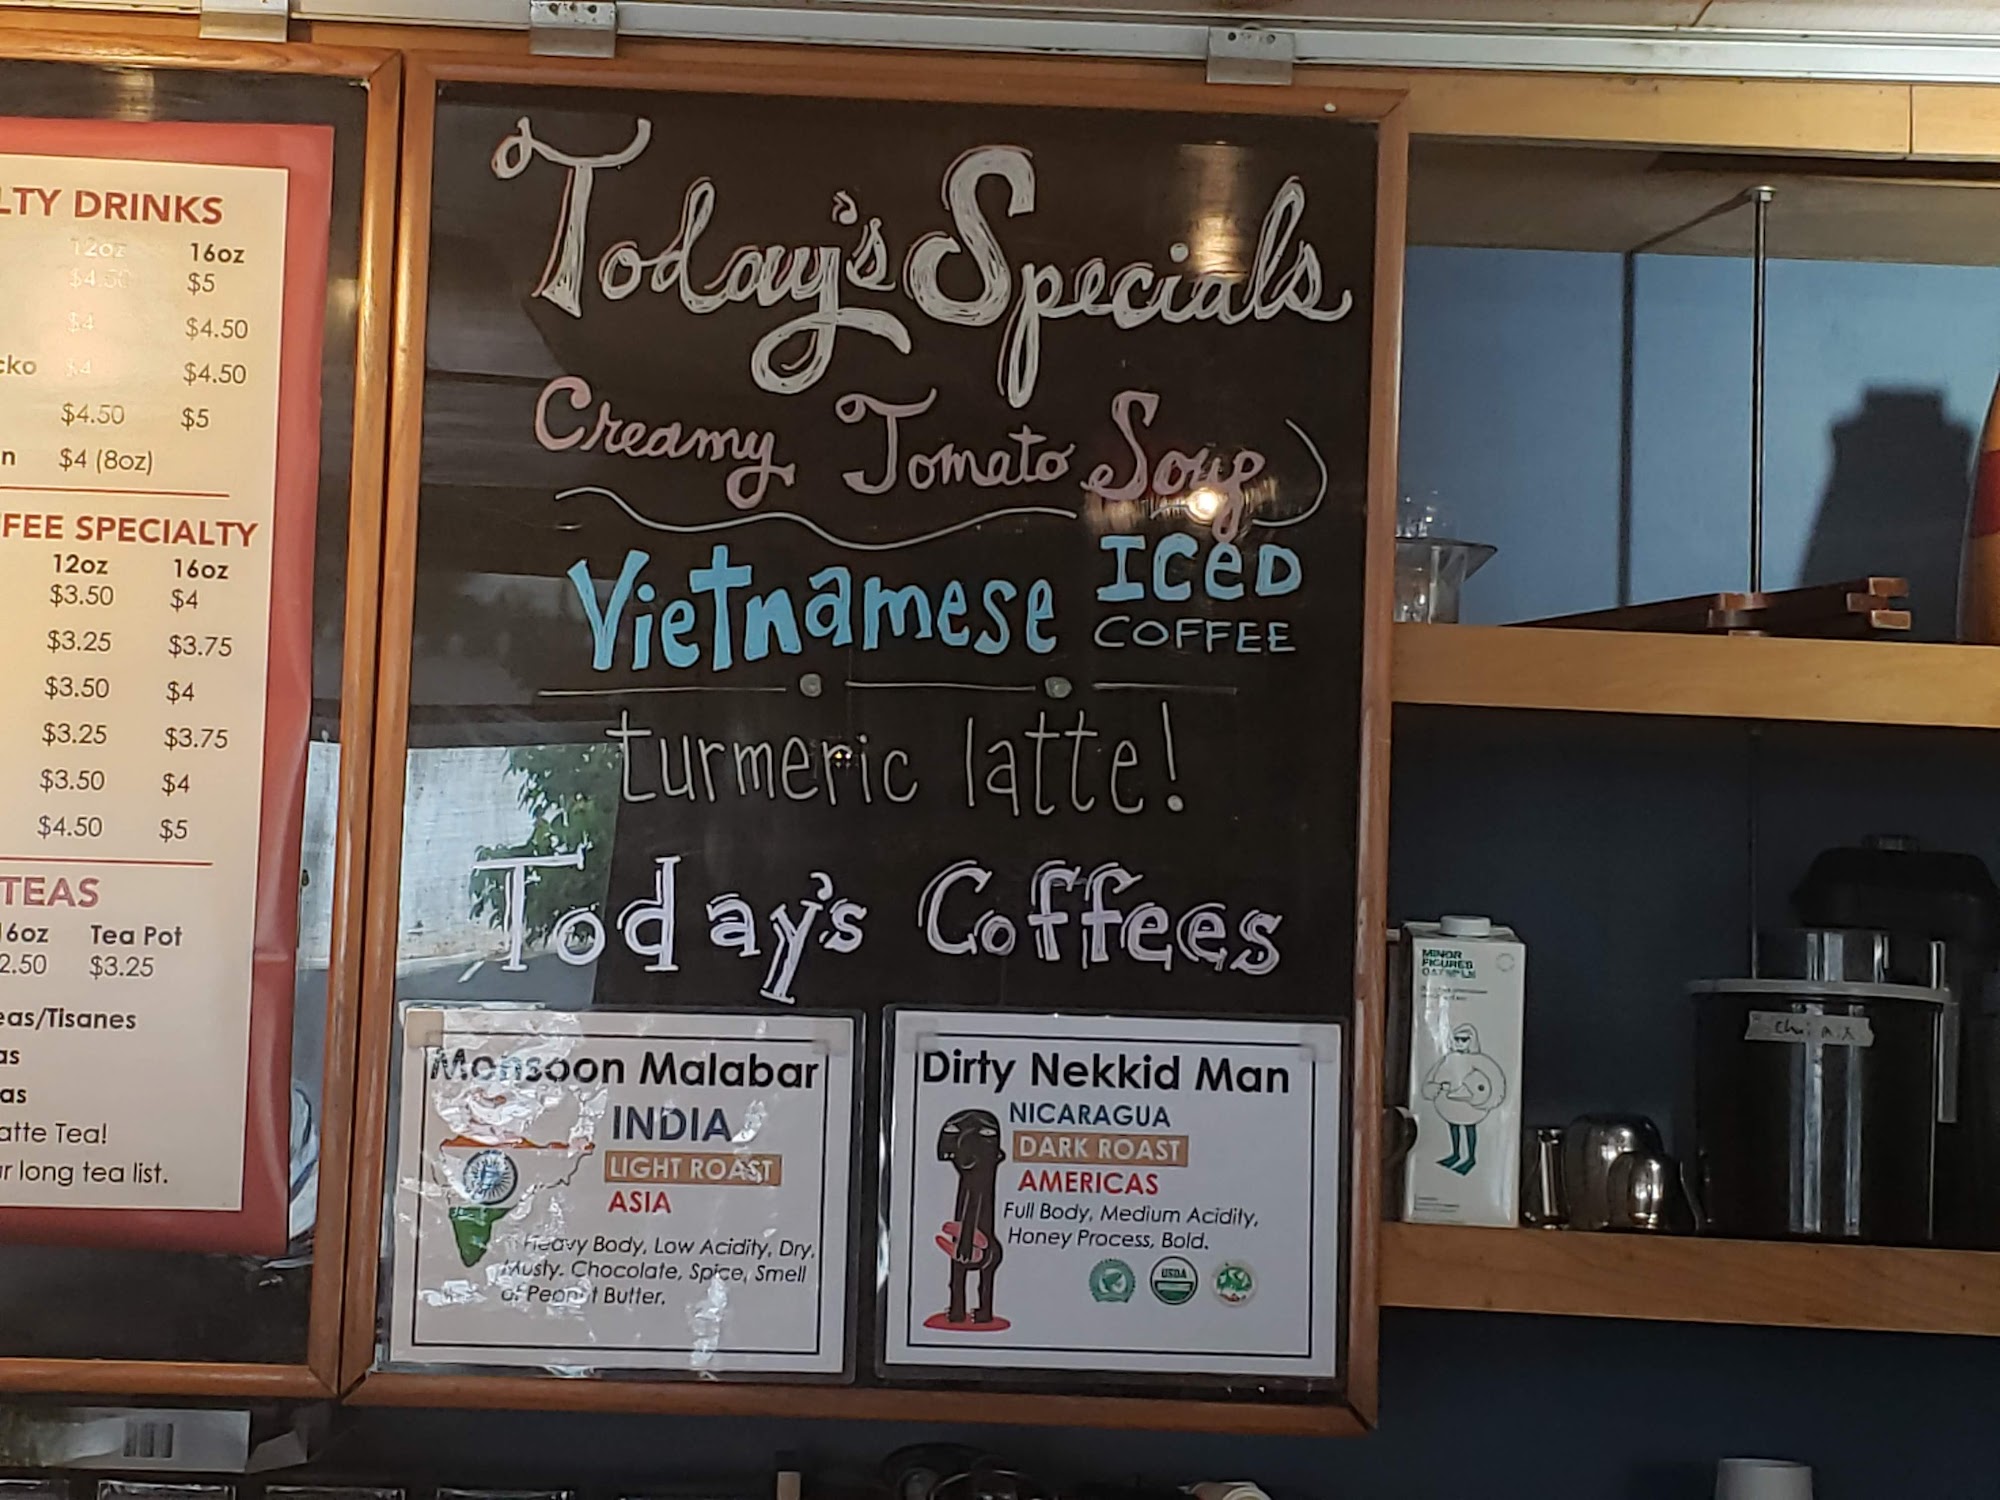 LTY DRINKS
12oz 16oz
$4.50 $5
$4 $4.50
cko $4 $4.50
$4.50 $5
n $4 (8oz)
FEE SPECIALTY
12oz 16oz
$3.50 $4
$3.25 $3.75
$3.50 $4
$3.25 $3.75
$3.50 $4
$4.50 $5
TEAS
16oz Tea Pot
2.50 $3.25
eas/Tisanes
as
as
atte Tea!
r long tea list.
Today's Specials
Creamy Tomato Soup
Vietnamese ICED
COFFEE
turmeric latte!
Today's Coffees
Monsoon Malabar
INDIA
LIGHT ROAST
ASIA
Heavy Body, Low Acidity, Dry,
Musty. Chocolate, Spice, Smell
of Peanut Butter.
Dirty Nekkid Man
NICARAGUA
DARK ROAST
AMERICAS
Full Body, Medium Acidity,
Honey Process, Bold.
USDA
MINOR
FIGURES